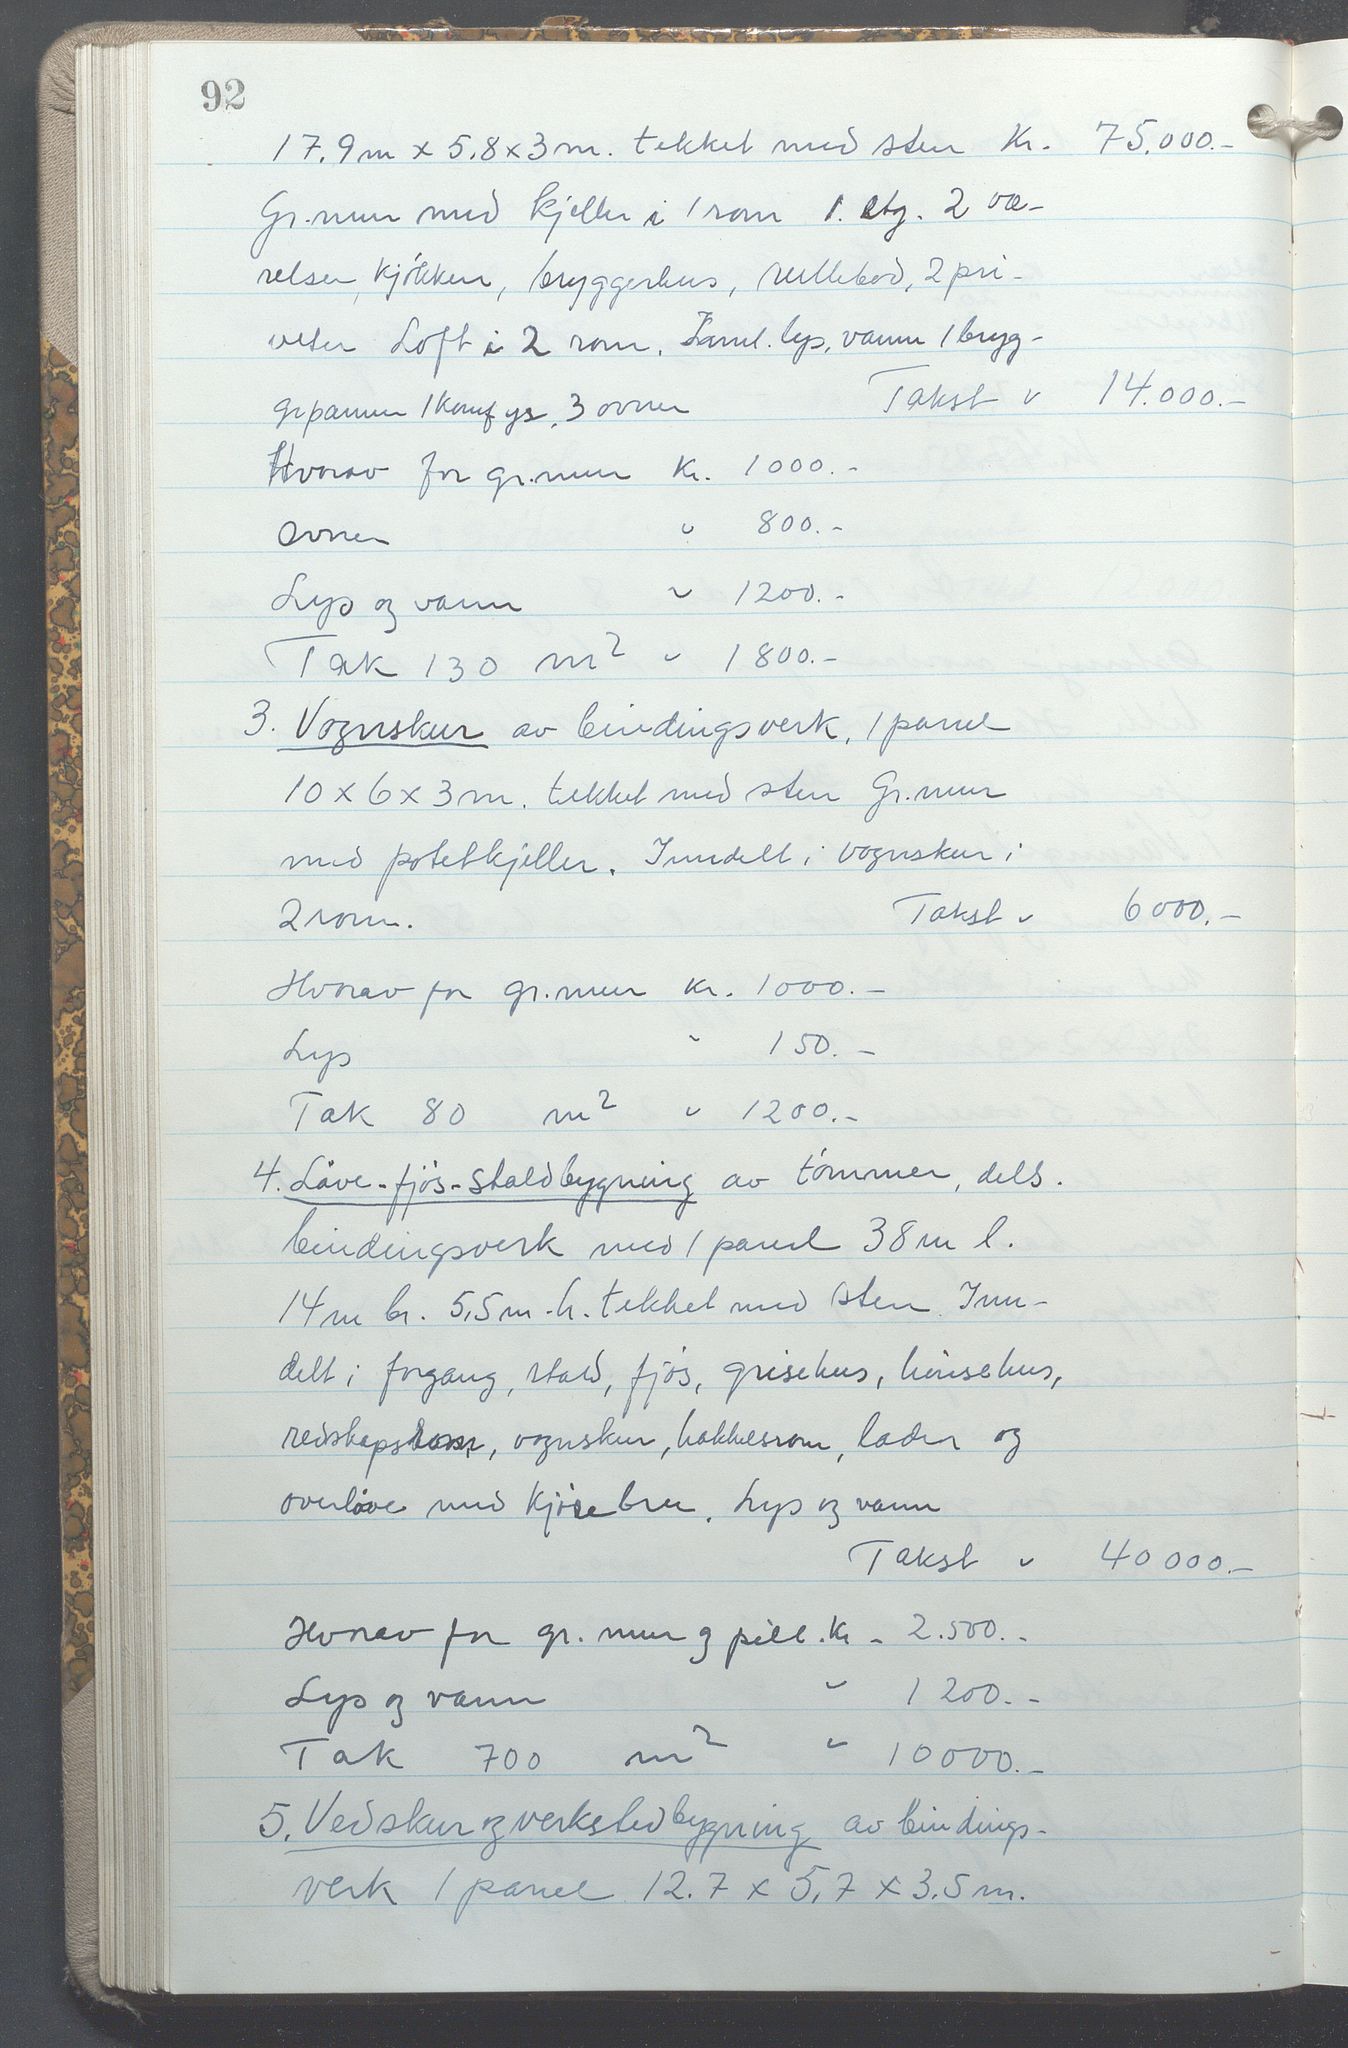 92
17.9m x 5,8x3m. tekket med sten Kr. 75.000.-
Gr.mur med kjeller i 1 rom 1. etg. 2 væ-
relser, kjøkken, bryggerhus, rullebod, 2 pri-
veter Loft i 2 rom. lys, vann 1 bryg-
gepanner 1 komfyr, 3 ovner Takst " 14.000.-
Hvorav for gr.mur Kr. 1000.-
Ovner " 800.-
Lys og vann " 1200.-
Tak 130 m² " 1800.-
3. Vognskur av bindingsverk, 1 panel
10 x 6 x 3m. tekket med sten Gr.mur
med potetkjeller. Inndelt i vognskur i
2 rom. Takst " 6000.-
Hvorav for gr.mur Kr. 1000.-
Lys " 150.-
Tak 80 m² " 1200.-
4. Låve-fjös-staldbygning av tömmer, dels.
bindingsverk med 1 panel 38m l.
14m br. 5,5m.h. tekket med sten Inn-
delt i forgang, stald, fjös, grisehus, hönsehus,
redskapsrom, vognskur, hakkelsrom, lader og
overlöve med kjörebru. Lys og vann
Takst " 40000.-
Hvorav for gr. mur og pill. Kr - 2.500.-
Lys og vann " 1200.-
Tak 700 m² " 10000.-
5. Vedskur og verkstedbygning av bindings-
verk 1 panel 12.7 x 5,7 x 3,5m.